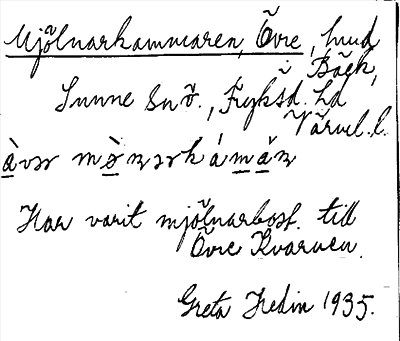 Mjölnarkammaren, Övre, hmd
Bäck,
Sunne snö., Fryksd. hd
Värml. l.
àvər mø̀nərkámáṛ
Har varit mjölnarbost. till
Övre Kvarnen.
Greta Hedin 1935.